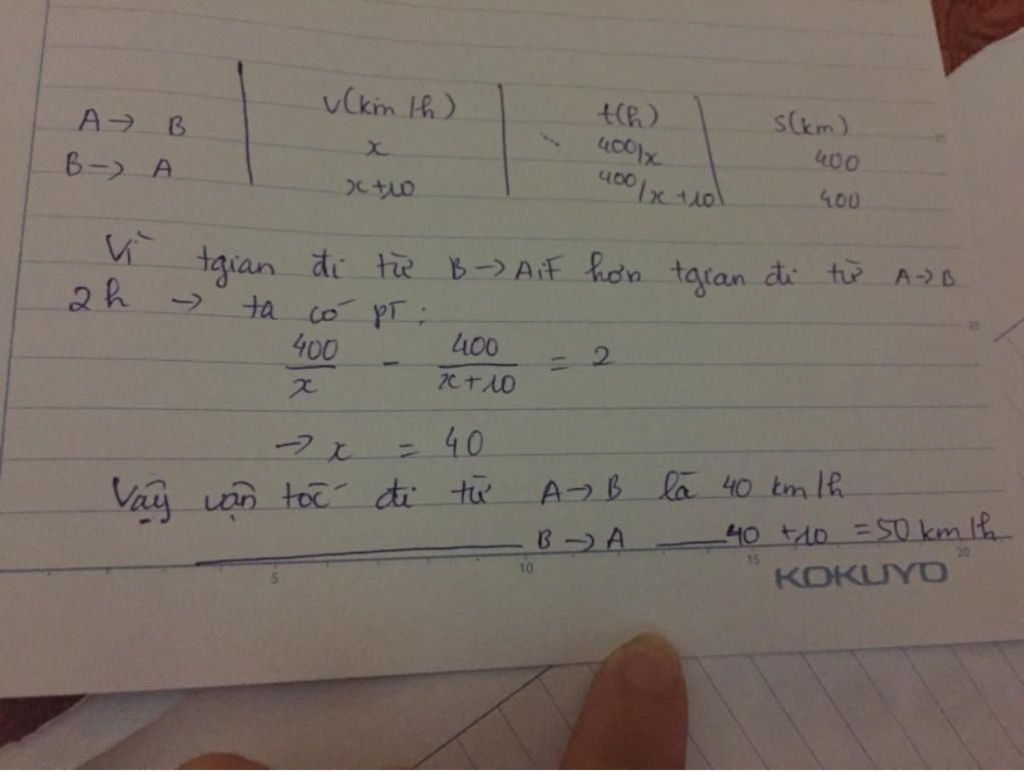 v(km/h) t(h) s(km)
A → B x 400/x 400
B → A x+10 400/x+10 400
Vì tgian đi từ B → A ít hơn tgian đi từ A → B
2h → ta có pT:
400/x - 400/x+10 = 2
→ x = 40
Vậy vận tốc đi từ A → B là 40 km/h
B → A 40 + 10 = 50 km/h
5 10 15 20
KOKUYO